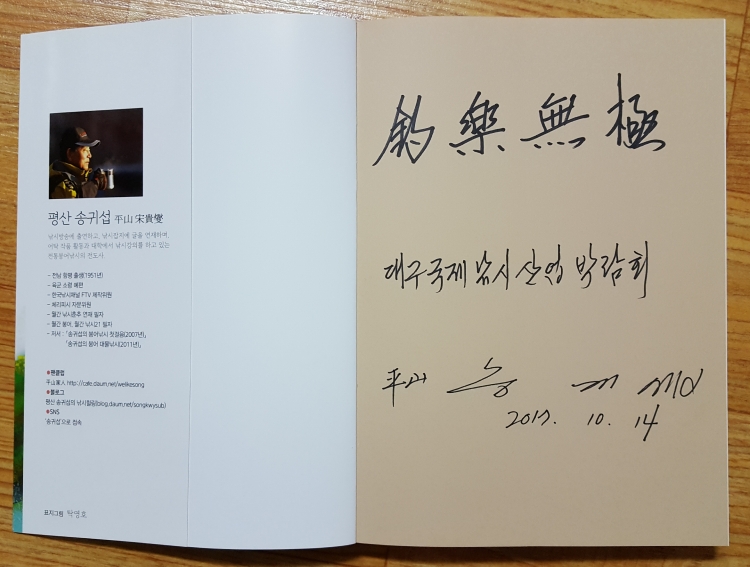 평산 송귀섭 平山 宋貴燮
낚시방송에 출연하고, 낚시잡지에 글을 연재하며,
어탁 작품 활동과 대학에서 낚시강의를 하고 있는
전통붕어낚시의 전도사.
- 전남 함평 출생(1951년)
- 육군 소령 예편
- 한국낚시채널 FTV 제작위원
- 체리피시 자문위원
- 월간 낚시춘추 연재 필자
- 월간 붕어, 월간 낚시21 필자
- 저서 : 「송귀섭의 붕어낚시 첫걸음(2007년)」
「송귀섭의 붕어 대물낚시(2011년)」
●팬클럽
平山家人 http://cafe.daum.net/welikesong
●블로그
평산 송귀섭의 낚시힐링(blog.daum.net/songkwysub)
●SNS
'송귀섭'으로 접속
표지그림 탁영호
釣樂無極
대구국제낚시산업박람회
平山 송
2017. 10. 14